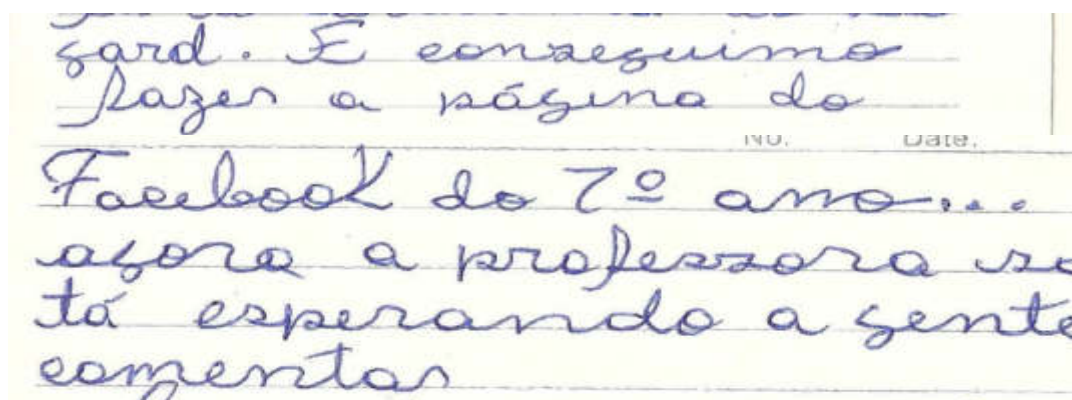 gard. E conseguimo
fazer a página do
No. Date.
Facebook do 7º ano...
agora a professora só
tá esperando a gente
comentar